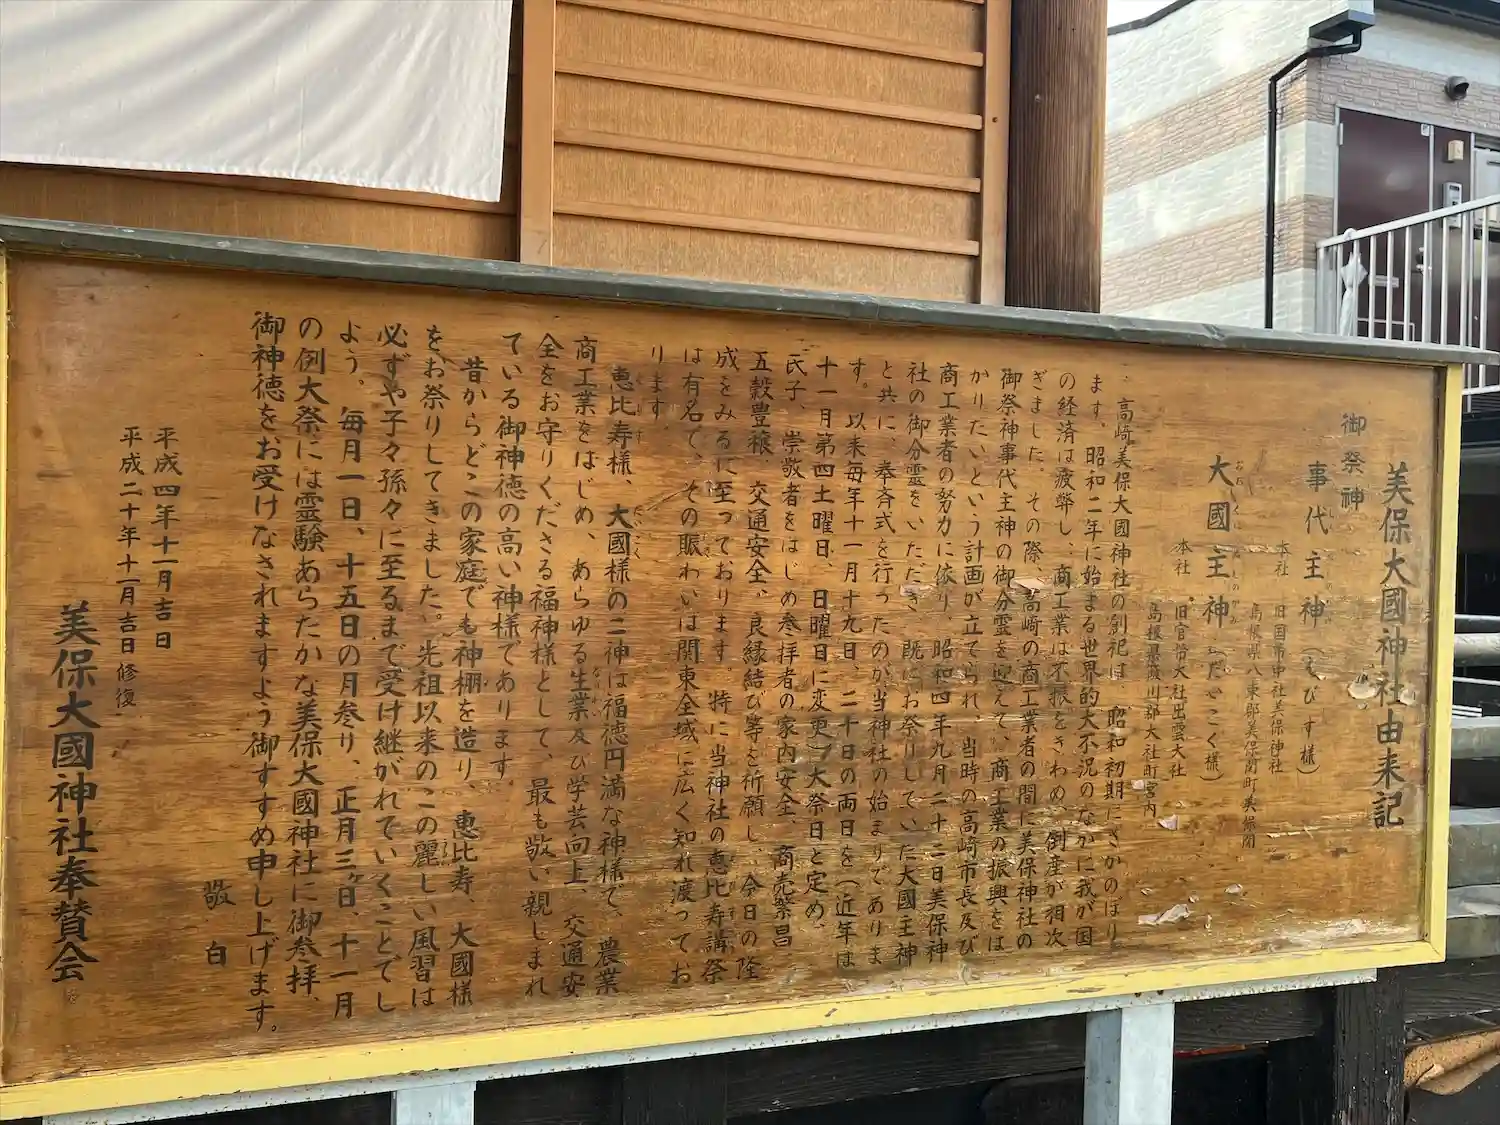 美保大國神社由来記
御祭神
事代主神（えびす様）
本社 旧国幣中社美保神社
島根県八束郡美保関町美保関
大國主神（だいこく様）
本社 旧官幣大社出雲大社
島根県簸川郡大社町宮内
高崎美保大國神社の創祀は、昭和初期にさかのぼり
ます。昭和二年に始まる世界的大不況のなかに我が国
の経済は疲弊し、商工業は不振をきわめ、倒産が相次
ぎました。その際、高崎の商工業者の間に美保神社の
御祭神事代主神の御分霊を迎えて、商工業の振興をは
かりたいという計画が立てられ、当時の高崎市長及び
商工業者の努力に依り、昭和四年九月二十二日美保神
社の御分霊をいただき、既にお祭りしていた大國主神
と共に、奉斉式を行ったのが当神社の始まりでありま
す。以来毎年十一月十九日、二十日の両日を（近年は
十一月第四土曜日、日曜日に変更）大祭日と定め、
氏子、崇敬者をはじめ参拝者の家内安全、商売繁昌、
五穀豊穣、交通安全、良縁結び等を祈願し、今日の隆
成をみるに至っております。特に当神社の恵比寿講祭
は有名で、その賑わいは関東全域に広く知れ渡ってお
ります。
恵比寿様、大國様の二神は福徳円満な神様で、農業
商工業をはじめ、あらゆる生業及び学芸向上、交通安
全をお守りくださる福神様として、最も敬い親しまれ
ている御神徳の高い神様であります。
昔からどこの家庭でも神棚を造り、恵比寿、大國様
をお祭りしてきました。先祖以来のこの麗しい風習は
必ずや子々孫々に至るまで受け継がれていくことでし
よう。毎月一日、十五日の月参り、正月三ヶ日、十一月
の例大祭には霊験あらたかな美保大國神社に御参拝、
御神徳をお受けなされますよう御すすめ申し上げます。
敬白
平成四年十一月吉日
平成二十年十一月吉日修復
美保大國神社奉賛会